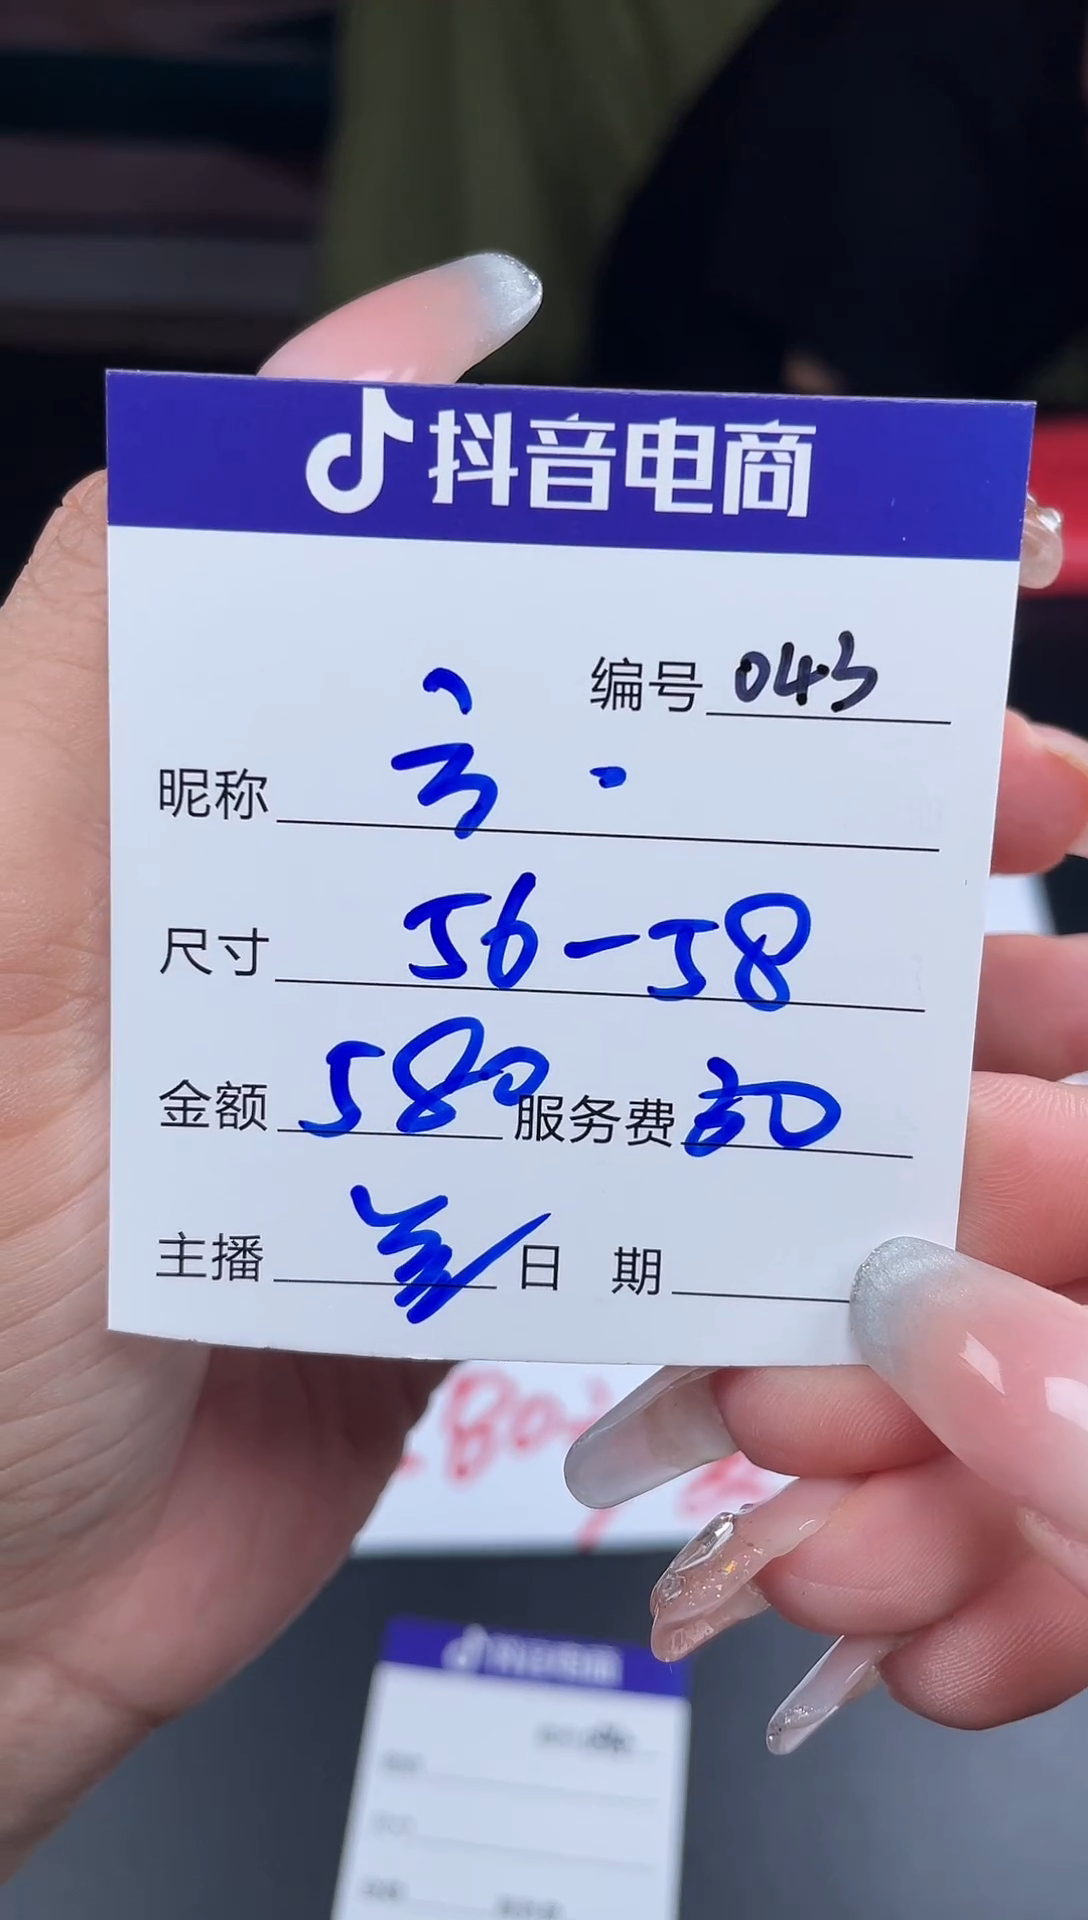 抖音电商
编号 043
昵称
尺寸 56-58
金额 580 服务费 30
主播 日 期
80
抖音电商